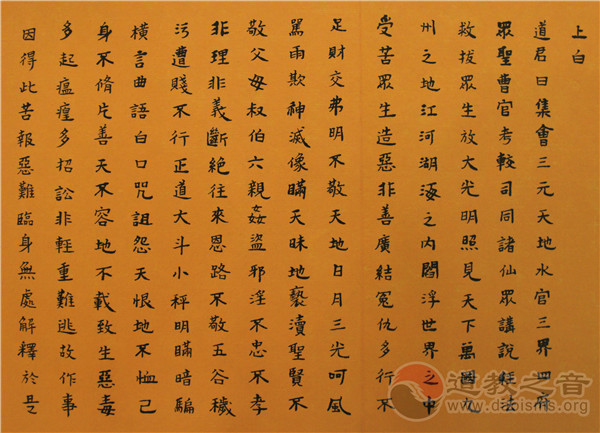 上白
道君曰集會三元天地水官三界四府
眾聖曹官考較司同諸仙眾講說經法
救拔眾生放大光明照見天下萬國九
州之地江河湖之内閻浮世界之中
受苦眾生造惡非善廣結冤仇多行不
足財交弗明不敬天地日月三光呵風
罵雨欺神滅像瞞天昧地褻瀆聖賢不
敬父母叔伯六親姦盜邪淫不忠不孝
非理非義斷絕往來恩路不敬五谷穢
污遭賤不行正道大斗小秤明瞞暗騙
橫言曲語白口咒詛怨天恨地不恤己
身不脩片善天不容地不載致生惡毒
多起瘟癀多招訟非輕重難逃故作事
因得此苦報惡難臨身無處解釋於是
道教之音
www.daoisms.org